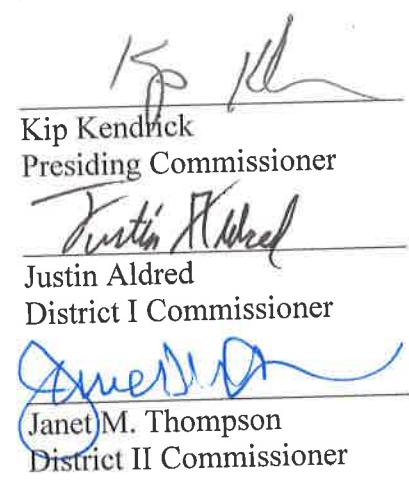 Kip
Kip Kendrick
Presiding Commissioner
Justin Aldred
Justin Aldred
District I Commissioner
Janet M. Thompson
District II Commissioner